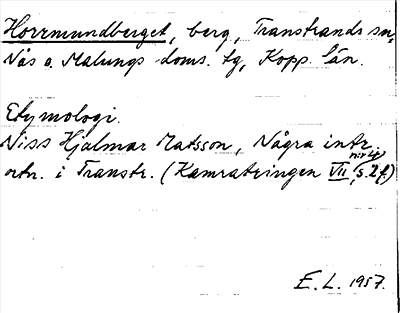 Horrmundberget, berg, Transtrands sn,
Nås o. Malungs doms. tg, Kopp. län.
Etymologi.
Niss Hjalmar Matsson, Några intr.
ortn. i Transtr. (Kamratringen VII, nr 4, s. 2 f.)
E. L. 1957.